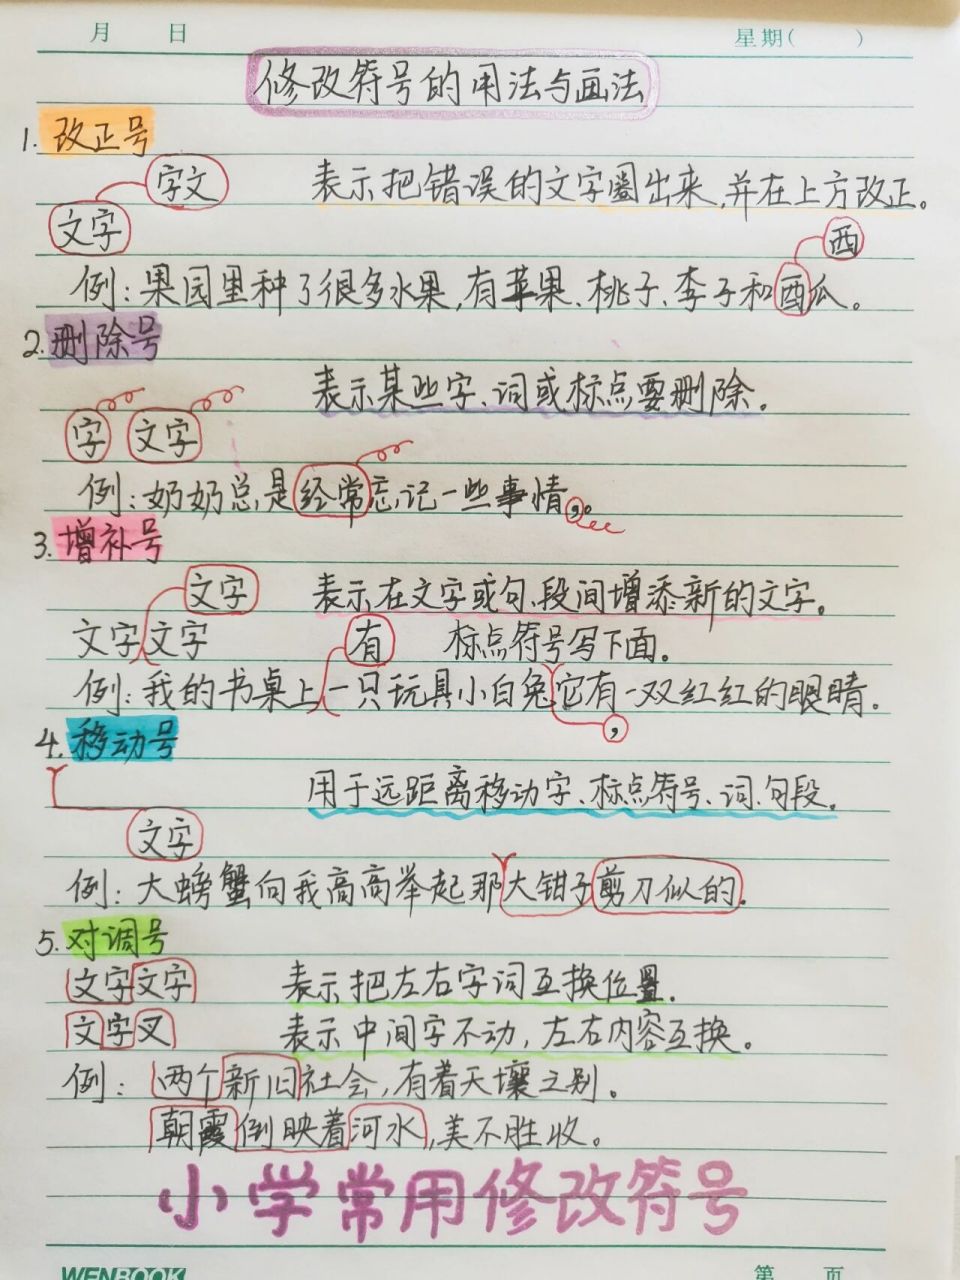 月 日 星期( )
修改符号的用法与画法
1. 改正号
字文 表示把错误的文字圈出来,并在上方改正。
文字
西
例:果园里种了很多水果,有苹果、桃子、李子和酉瓜。
2. 删除号
表示某些字、词或标点要删除。
字 文字
例:奶奶总是经常忘记一些事情,。
3. 增补号
文字 表示在文字或句、段间增添新的文字。
文字文字 有 标点符号写下面。
例:我的书桌上一只玩具小白兔它有一双红红的眼睛。
,
4. 移动号
用于远距离移动字、标点符号、词、句段。
文字
例:大螃蟹向我高高举起那大钳子剪刀似的.
5. 对调号
文字文字 表示把左右字词互换位置.
文字叉 表示中间字不动,左右内容互换。
例:两个新旧社会,有着天壤之别.
朝霞倒映着河水,美不胜收。
小学常用修改符号
WENBOOK 第 页